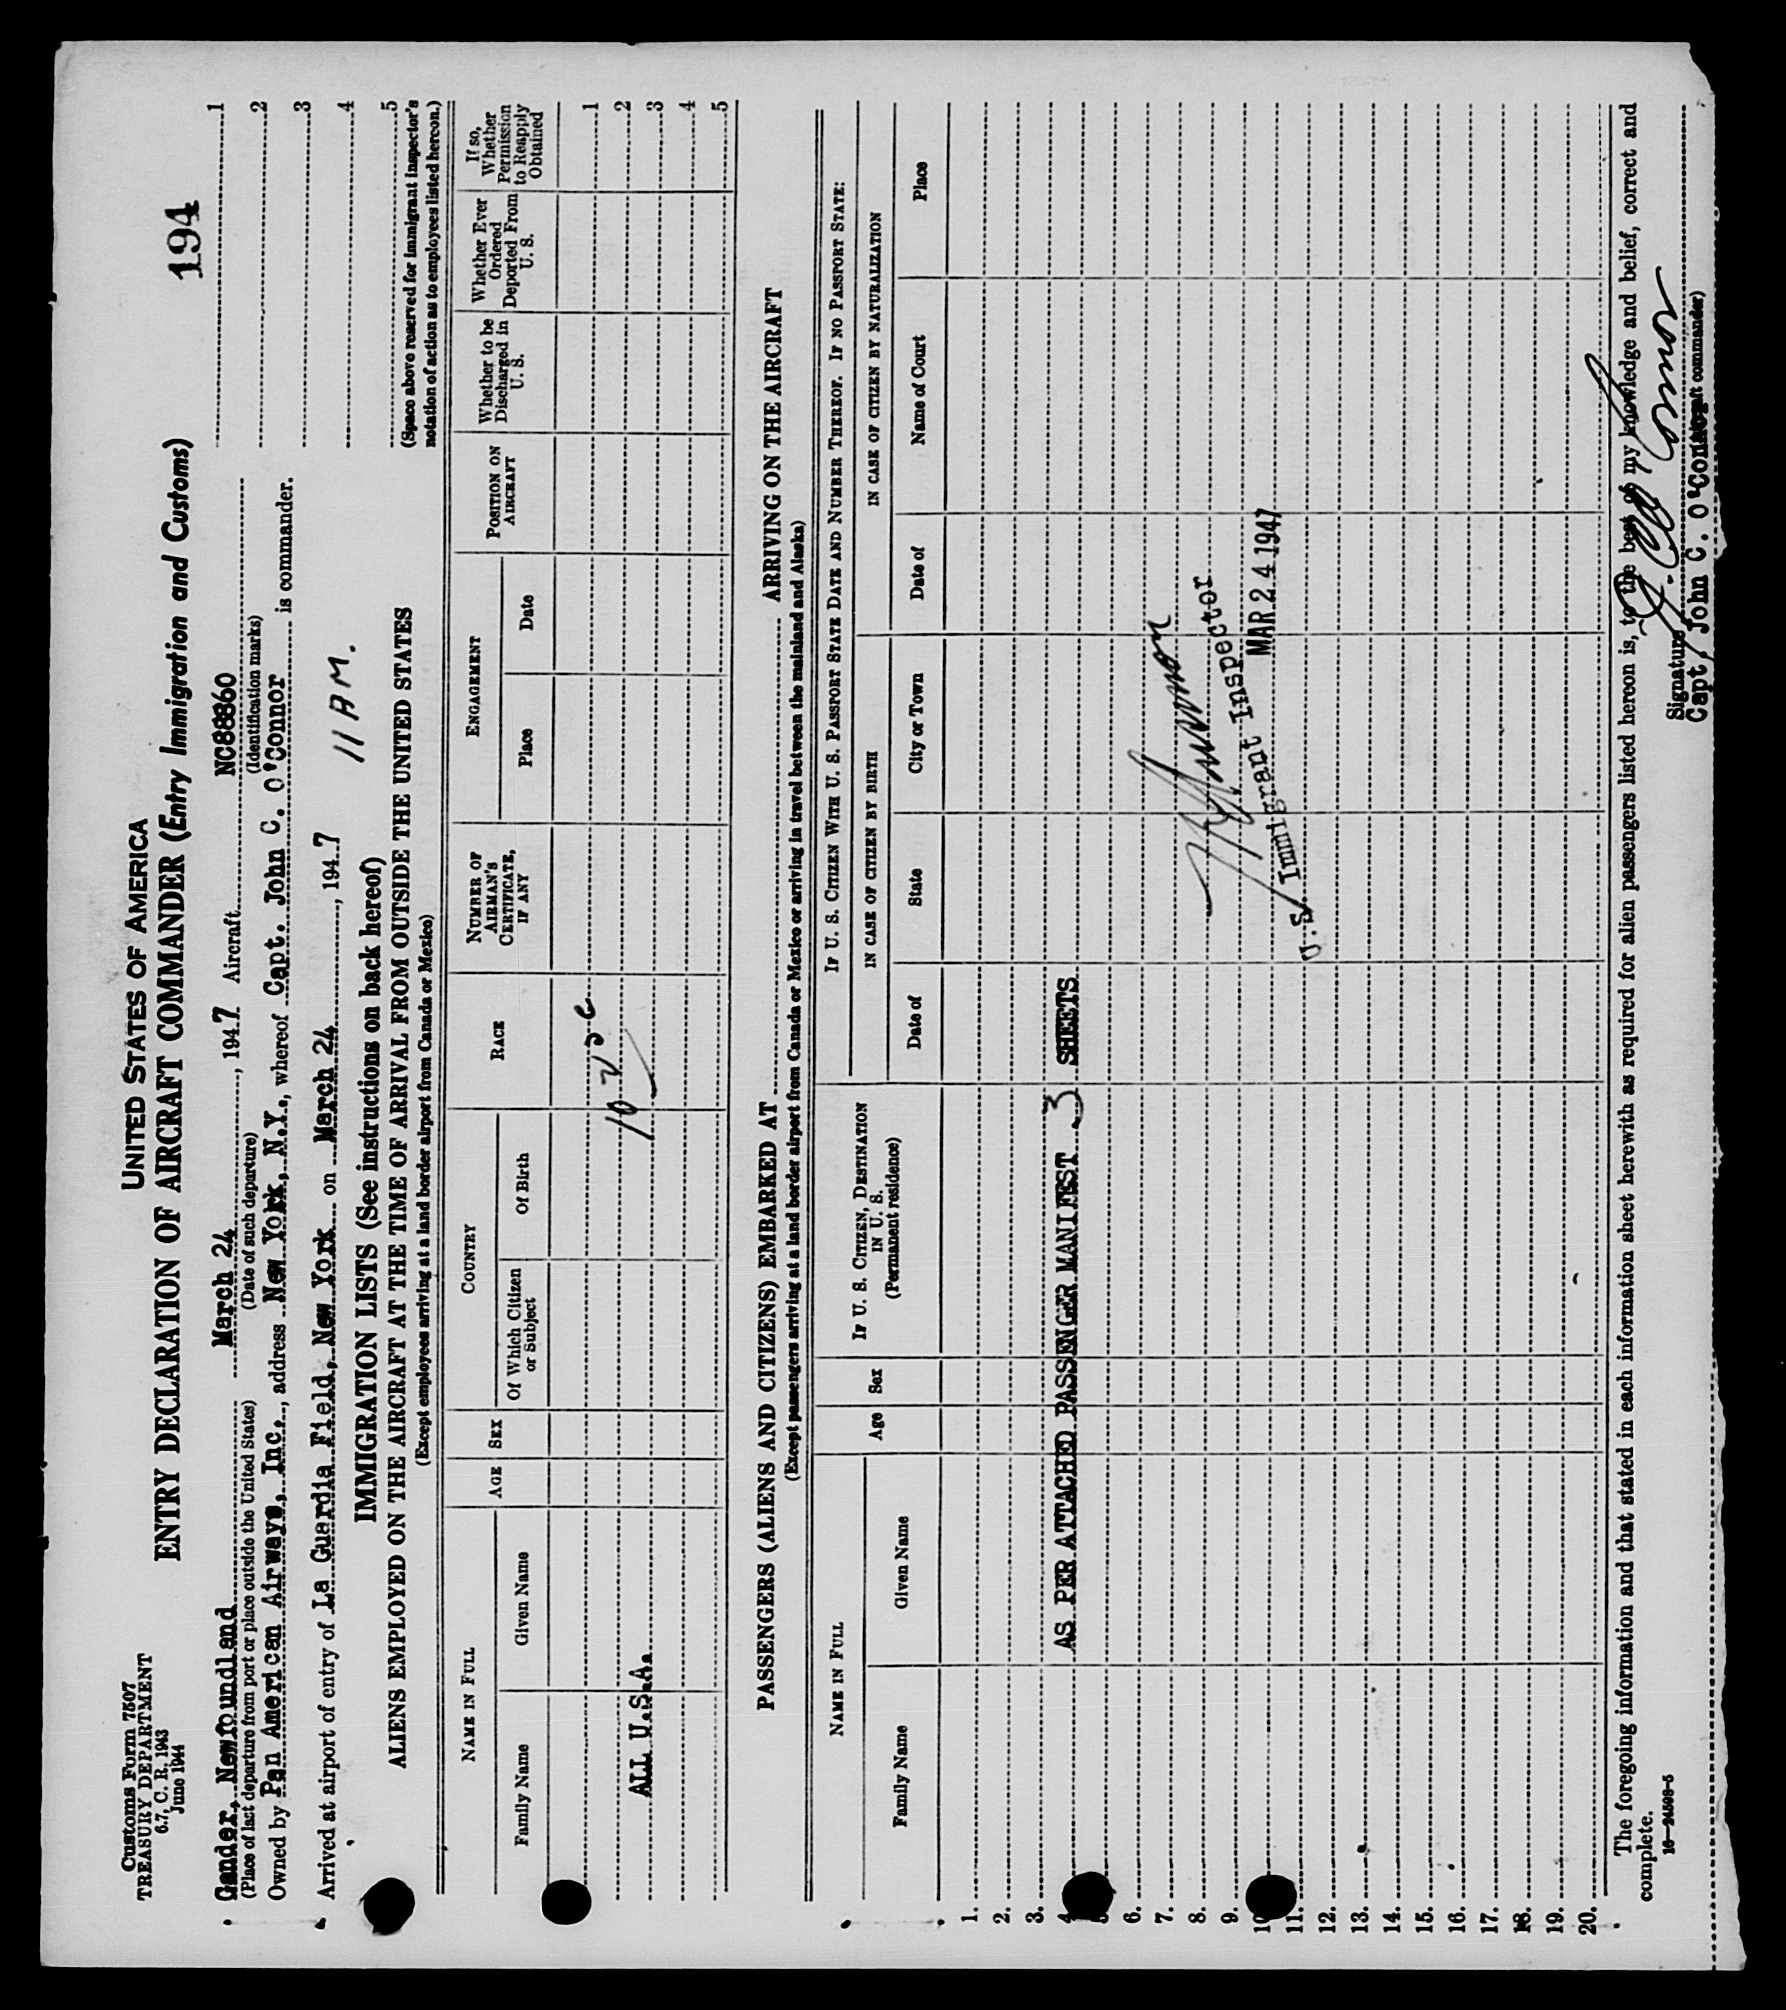 Customs Form 7507
TREASURY DEPARTMENT
6.7, C. R. 1943
June 1944
194
UNITED STATES OF AMERICA
ENTRY DECLARATION OF AIRCRAFT COMMANDER (Entry Immigration and Customs)
Gander, Newfoundland March 24, 1947 Aircraft NC88860
(Place of last departure from port or place outside the United States) (Date of such departure) (Identification marks)
Owned by Pan American Airways, Inc., address New York, N.Y., whereof Capt. John C. O'Connor is commander.
Arrived at airport of entry of La Guardia Field, New York on March 24, 1947 11 AM.
1
2
3
4
5
(Space above reserved for immigrant inspector's
notation of action as to employees listed hereon.)
IMMIGRATION LISTS (See instructions on back hereof)
ALIENS EMPLOYED ON THE AIRCRAFT AT THE TIME OF ARRIVAL FROM OUTSIDE THE UNITED STATES
(Except employees arriving at a land border airport from Canada or Mexico)
NAME IN FULL
Family Name
Given Name
AGE
SEX
COUNTRY
Of Which Citizen
or Subject
Of Birth
RACE
NUMBER OF
AIRMAN'S
CERTIFICATE,
IF ANY
ENGAGEMENT
Place
Date
POSITION ON
AIRCRAFT
Whether to be
Discharged in
U. S.
Whether Ever
Ordered
Deported From
U. S.
If so,
Whether
Permission
to Reapply
Obtained
1
2
3
4
5
ALL U.S.A.
PASSENGERS (ALIENS AND CITIZENS) EMBARKED AT ARRIVING ON THE AIRCRAFT
(Except passengers arriving at a land border airport from Canada or Mexico or arriving in travel between the mainland and Alaska)
NAME IN FULL
Family Name
Given Name
Age
Sex
IF U. S. CITIZEN, DESTINATION
IN U. S.
(Permanent residence)
IF U. S. CITIZEN WITH U. S. PASSPORT STATE DATE AND NUMBER THEREOF. IF NO PASSPORT STATE:
IN CASE OF CITIZEN BY BIRTH
Date of
State
City or Town
IN CASE OF CITIZEN BY NATURALIZATION
Date of
Name of Court
Place
1.
2.
3.
4.
5.
6.
7.
8.
9.
10
11.
12.
13.
14.
15.
16.
17.
18.
19.
20.
AS PER ATTACHED PASSENGER MANIFEST 3 SHEETS
U.S. Immigrant Inspector
MAR 24 1947
The foregoing information and that stated in each information sheet herewith as required for alien passengers listed hereon is, to the best of my knowledge and belief, correct and
complete.
16—24598-5
Signature
Capt. John C. O'Connor